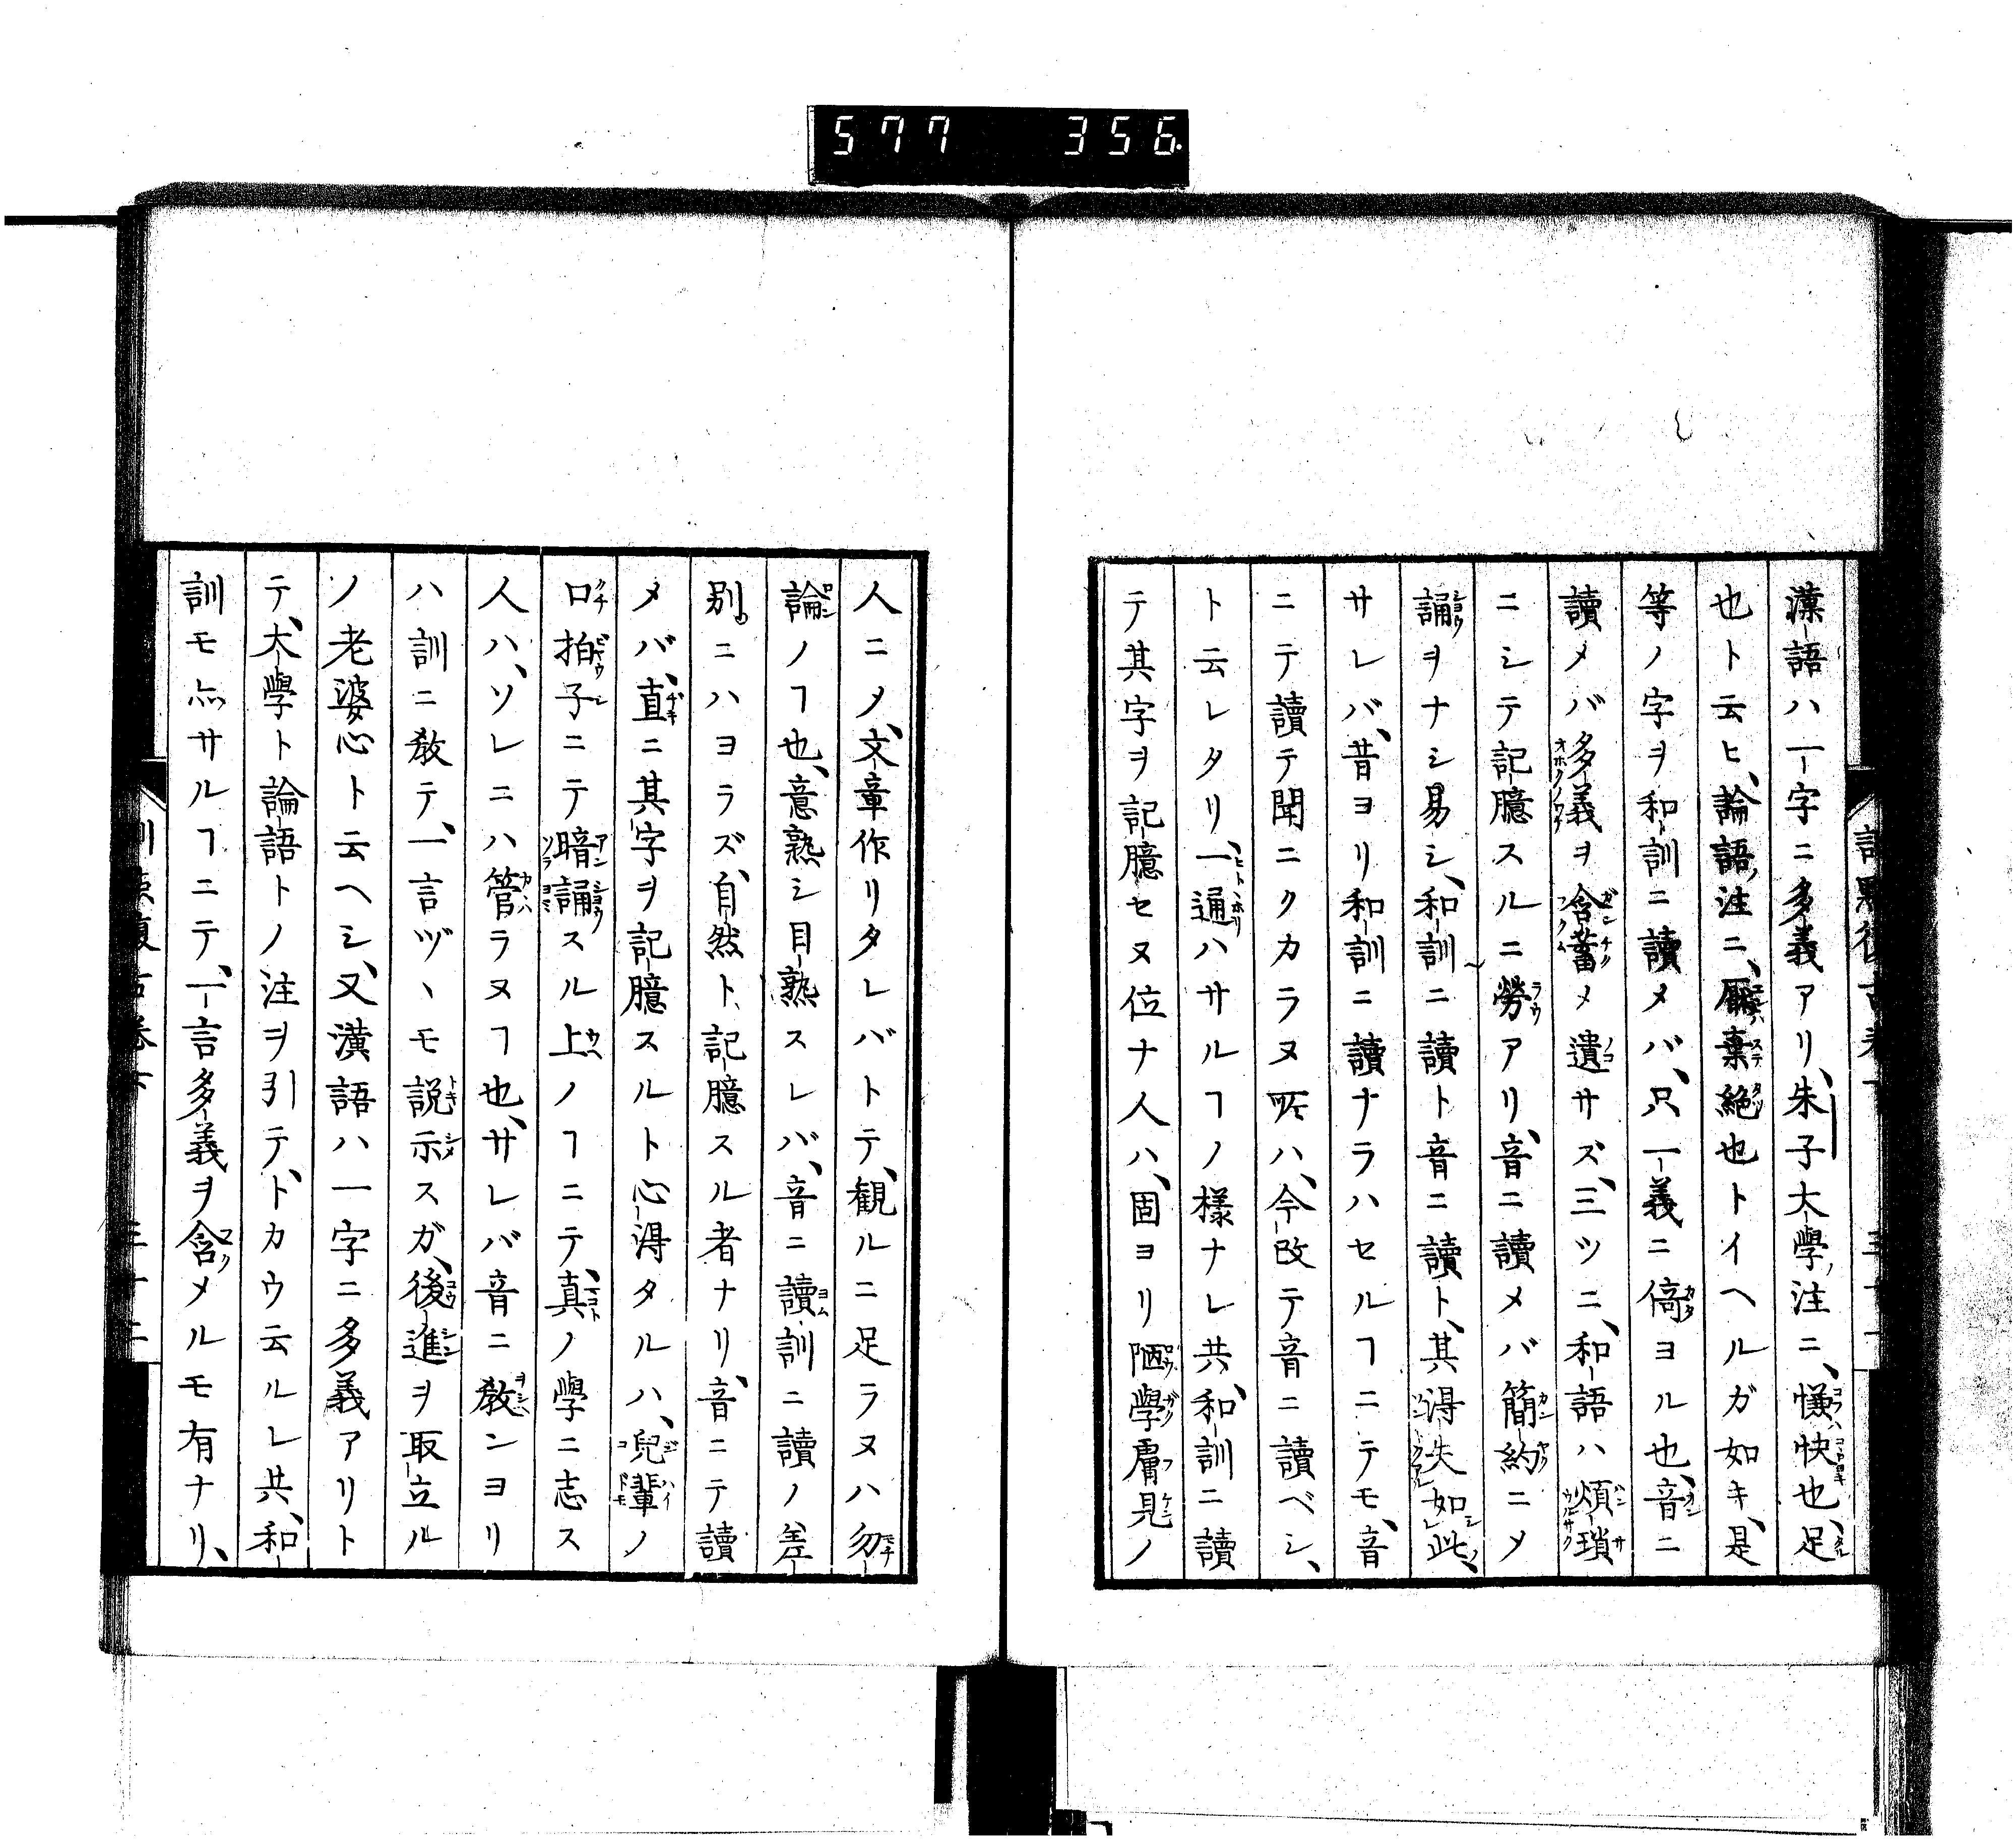 577 356
漢語ハ一字ニ多義アリ、朱子大學ノ注ニ、慊快也、足
也ト云ヒ、論語ノ注ニ、厭棄絶也トイヘルガ如キ、是
等ノ字ヲ和訓ニ讀メバ、只一義ニ倚ヨル也、音ニ
讀メバ多義ヲ含蓄メ遺サズ、三ツニ、和語ハ煩瑣
ニシテ記臆スルニ勞アリ、音ニ讀メバ簡約ニメ
誦ヲナシ易シ、和訓ニ讀ト音ニ讀ト、其得失如此、
サレバ、昔ヨリ和訓ニ讀ナラハセルヿニテモ、音
ニテ讀テ聞ニクカラヌ所ハ、今改テ音ニ讀ベシ、
ト云レタリ、一通ハサルヿノ様ナレ共、和訓ニ讀
テ其字ヲ記臆セヌ位ナ人ハ、固ヨリ陋學膚見ノ
人ニメ、文章作リタレバトテ、観ルニ足ラヌハ勿
論ノヿ也、意熟シ目熟スレバ、音ニ讀訓ニ讀ノ差
別ニハヨラズ、自然ト記臆スル者ナリ、音ニテ讀
メバ、直ニ其字ヲ記臆スルト心得タルハ、兒輩ノ
口拍子ニテ暗誦スル上ノヿニテ、真ノ學ニ志ス
人ハ、ソレニハ管ラヌヿ也、サレバ音ニ教ンヨリ
ハ訓ニ教テ、一言ヅヽモ説示スガ、後進ヲ取立ル
ノ老婆心ト云ヘシ、又漢語ハ一字ニ多義アリト
テ、大學ト論語トノ注ヲ引テ、トカウ云ルレ共、和
訓モ亦サルヿニテ、一言多義ヲ含メルモ有ナリ、